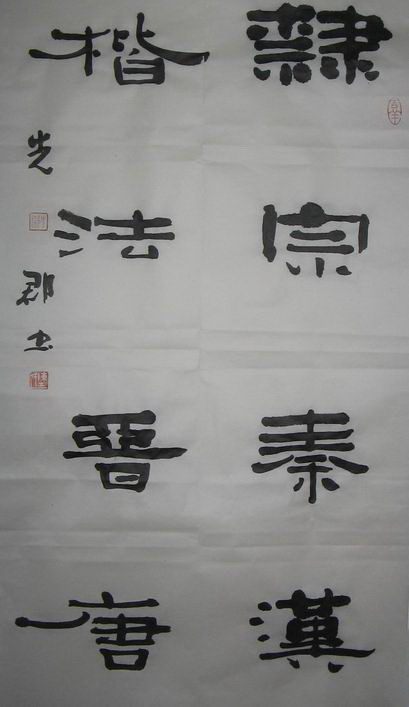 隸宗秦漢
楷法晉唐
先郡书